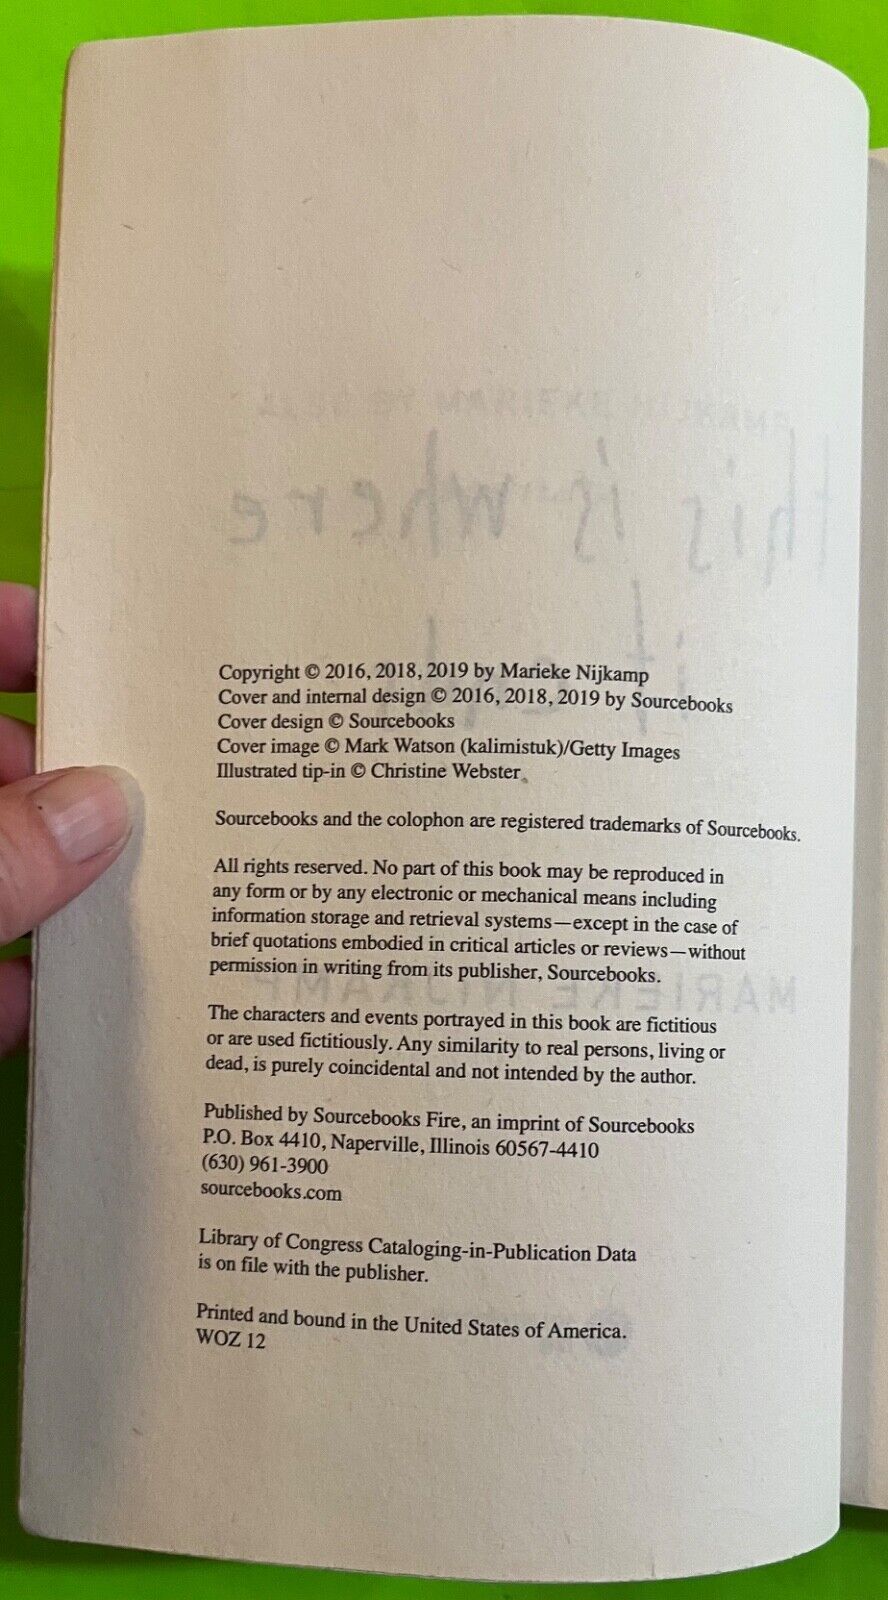 this is where
it
MARIEKE NIJKAMP
Copyright © 2016, 2018, 2019 by Marieke Nijkamp
Cover and internal design © 2016, 2018, 2019 by Sourcebooks
Cover design © Sourcebooks
Cover image © Mark Watson (kalimistuk)/Getty Images
Illustrated tip-in © Christine Webster
Sourcebooks and the colophon are registered trademarks of Sourcebooks.
All rights reserved. No part of this book may be reproduced in
any form or by any electronic or mechanical means including
information storage and retrieval systems—except in the case of
brief quotations embodied in critical articles or reviews—without
permission in writing from its publisher, Sourcebooks.
The characters and events portrayed in this book are fictitious
or are used fictitiously. Any similarity to real persons, living or
dead, is purely coincidental and not intended by the author.
Published by Sourcebooks Fire, an imprint of Sourcebooks
P.O. Box 4410, Naperville, Illinois 60567-4410
(630) 961-3900
sourcebooks.com
Library of Congress Cataloging-in-Publication Data
is on file with the publisher.
Printed and bound in the United States of America.
WOZ 12